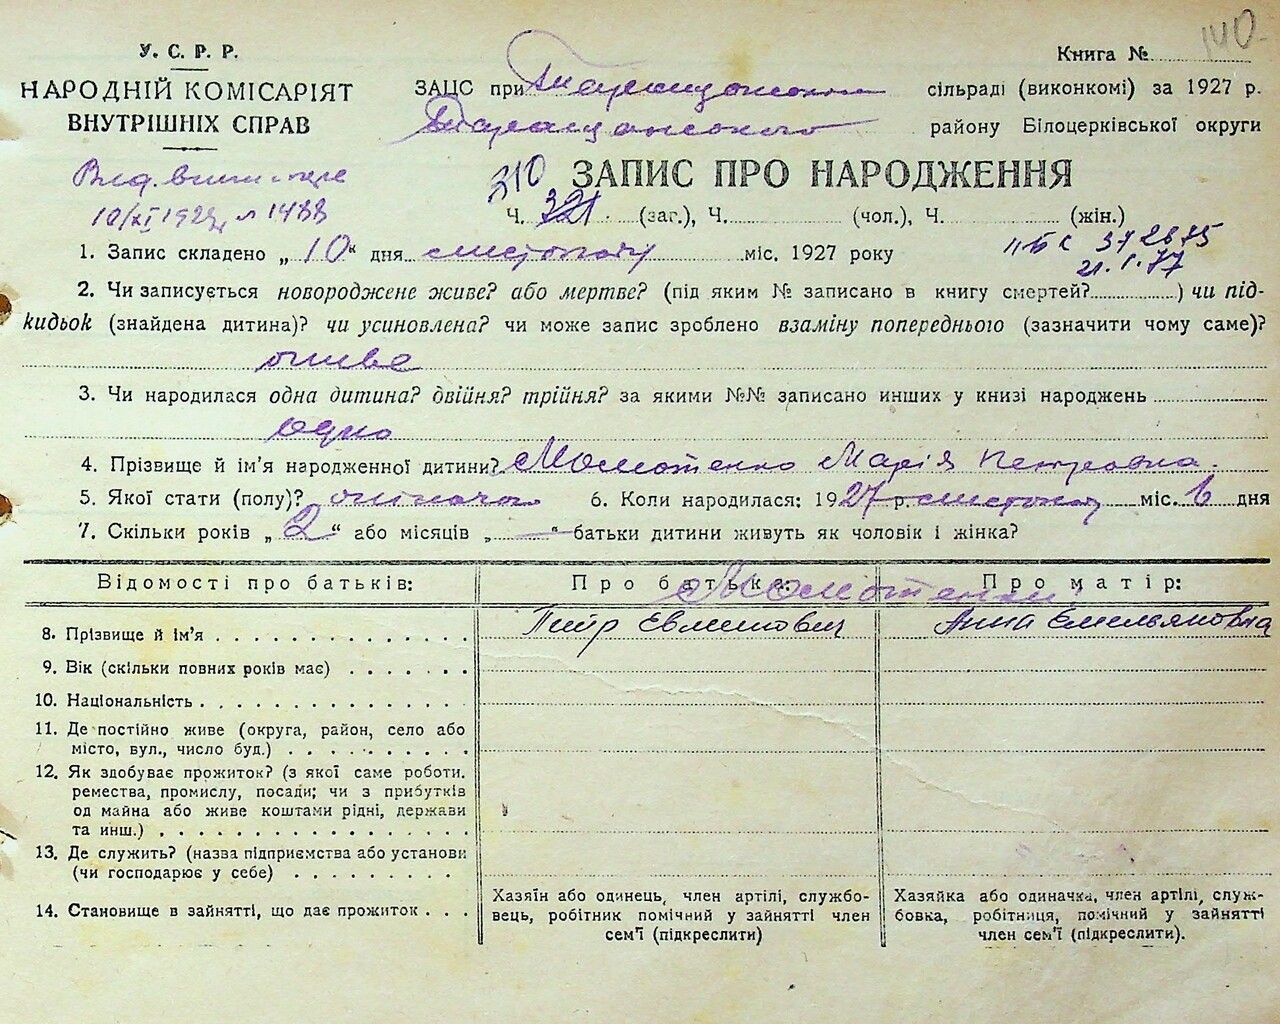 140
У. С. Р. Р.
Книга №
НАРОДНІЙ КОМІСАРІЯТ
ВНУТРІШНІХ СПРАВ
ЗАЦС при Таращанском сільраді (виконкомі) за 1927 р.
Таращанского району Білоцерківської округи
10/XI 1927 № 1488
310
ЗАПИС ПРО НАРОДЖЕННЯ
Ч. 321 (заг.), Ч. (чол.), Ч. (жін.)
1. Запис складено „ 10 “ дня листопаду міс. 1927 року
372875
21.I.77
2. Чи записується новороджене живе? або мертве? (під яким № записано в книгу смертей? ) чи під-
кидьок (знайдена дитина)? чи усиновлена? чи може запис зроблено взаміну попереднього (зазначити чому саме)?
живе
3. Чи народилася одна дитина? двійня? трійня? за якими №№ записано инших у книзі народжень
одно
4. Прізвище й ім’я народженної дитини? Момотенко Марія Петровна.
5. Якої стати (полу)? жіночої 6. Коли народилася: 1927 р. листопад міс. 6 дня
7. Скільки років „ 2 “ або місяців „ — “ батьки дитини живуть як чоловік і жінка?
Відомості про батьків: Про батька: Про матір:
Момотенки
8. Прізвище й ім’я Петр Евменович Анна Емельяновна
9. Вік (скільки повних років має)
10. Національність
11. Де постійно живе (округа, район, село або
місто, вул., число буд.)
12. Як здобуває прожиток? (з якої саме роботи.
ремества, промислу, посади; чи з прибутків
од майна або живе коштами рідні, держави
та инш.)
13. Де служить? (назва підприємства або установи
(чи господарює у себе)
14. Становище в зайнятті, що дає прожиток
Хазяїн або одинець, член артілі, службо-
вець, робітник помічний у зайнятті член
сем’ї (підкреслити)
Хазяйка або одиначка, член артілі, служ-
бовка, робітниця, помічний у зайнятті
член сем’ї (підкреслити).